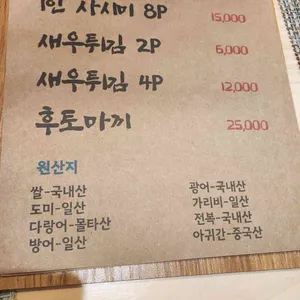 1인 사시미 8P 15,000
새우튀김 2P 6,000
새우튀김 4P 12,000
후토마끼 25,000
원산지
쌀-국내산 광어-국내산
도미-일산 가리비-일산
다랑어-몰타산 전복-국내산
방어-일산 아귀간-중국산